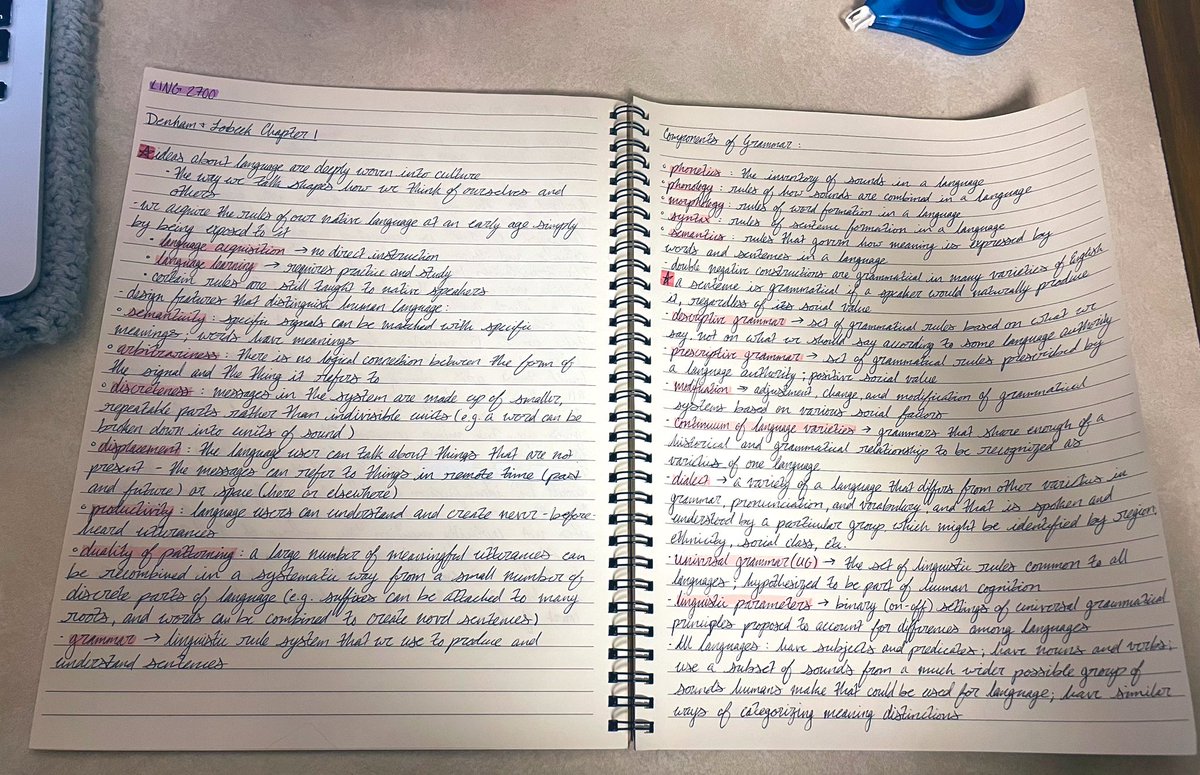 LING 2700
Denham + Lobeck Chapter 1
ideas about language are deeply woven into culture
- the way we talk shapes how we think of ourselves and
others
- we acquire the rules of our native language at an early age simply
by being exposed to it
• language acquisition → no direct instruction
• language learning → requires practice and study
• certain rules are still taught to native speakers
- design features that distinguish human language:
• semanticity: specific signals can be matched with specific
meanings; words have meanings
• arbitrariness: there is no logical connection between the form of
the signal and the thing it refers to
• discreteness: messages in the system are made up of smaller,
repeatable parts rather than indivisible units (e.g. a word can be
broken down into units of sound)
• displacement: the language user can talk about things that are not
present - the messages can refer to things in remote time (past
and future) or space (here or elsewhere)
• productivity: language users can understand and create never-before-
heard utterances
• duality of patterning: a large number of meaningful utterances can
be recombined in a systematic way from a small number of
discrete parts of language (e.g. suffixes can be attached to many
roots, and words can be combined to create novel sentences)
- grammar → linguistic rule system that we use to produce and
understand sentences
Components of Grammar:
• phonetics: the inventory of sounds in a language
• phonology: rules of how sounds are combined in a language
• morphology: rules of word formation in a language
• syntax: rules of sentence formation in a language
• semantics: rules that govern how meaning is expressed by
words and sentences in a language
- double negative constructions are grammatical in many varieties of English
a sentence is grammatical if a speaker would naturally produce
it, regardless of its social value
- descriptive grammar → set of grammatical rules based on what we
say, not on what we should say according to some language authority
- prescriptive grammar → set of grammatical rules prescribed by
a language authority; positive social value
- modification → adjustment, change, and modification of grammatical
systems based on various social factors
- continuum of language varieties → grammars that share enough of a
historical and grammatical relationship to be recognized as
varieties of one language
- dialect → a variety of a language that differs from other varieties in
grammar, pronunciation, and vocabulary, and that is spoken and
understood by a particular group which might be identified by region,
ethnicity, social class, etc.
- universal grammar (UG) → the set of linguistic rules common to all
languages; hypothesized to be part of human cognition
- linguistic parameters → binary (on-off) settings of universal grammatical
principles proposed to account for differences among languages
- All languages: have subjects and predicates; have nouns and verbs;
use a subset of sounds from a much wider possible group of
sounds humans make that could be used for language; have similar
ways of categorizing meaning distinctions